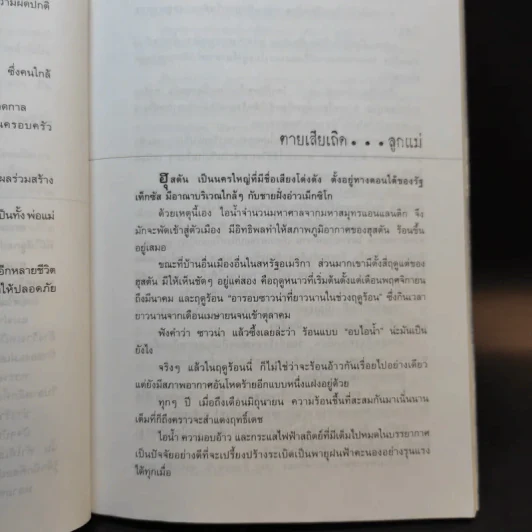 ามผิดปกติ
ซึ่งคนใกล้
ดกาล
นครอบครัว
ผลร่วมสร้าง
เป็นทั้ง พ่อแม่
อีกหลายชีวิต
ให้ปลอดภัย
ตายเสียเถิด... ลูกแม่
ฮุสตัน เป็นนครใหญ่ที่มีชื่อเสียงโด่งดัง ตั้งอยู่ทางตอนใต้ของรัฐ
เท็กซัส มีอาณาบริเวณใกล้ๆ กับชายฝั่งอ่าวเม็กซิโก
ด้วยเหตุนี้เอง ไอน้ำจำนวนมหาศาลจากมหาสมุทรแอนแลนติก จึง
มักจะพัดเข้าสู่ตัวเมือง มีอิทธิพลทำให้สภาพภูมิอากาศของฮุสตัน ร้อนชื้น
อยู่เสมอ
ขณะที่บ้านอื่นเมืองอื่นในสหรัฐอเมริกา ส่วนมากเขามีตั้งสี่ฤดูแต่ของ
ฮุสตัน มีให้เห็นชัดๆ อยู่แค่สอง คือฤดูหนาวที่เริ่มต้นตั้งแต่เดือนพฤศจิกายน
ถึงมีนาคม และฤดูร้อน "อารอบซาวน่าที่ยาวนานในช่วงฤดูร้อน" ซึ่งกินเวลา
ยาวนานจากเดือนเมษายนจนเข้าตุลาคม
ฟังคำว่า ซาวน่า แล้วซึ้งเลยล่ะว่า ร้อนแบบ "อบไอน้ำ" น่ะมันเป็น
ยังไง
จริงๆ แล้วในฤดูร้อนนี้ ก็ไม่ใช่ว่าจะร้อนอ้าวกันเรื่อยไปอย่างเดียว
แต่ยังมีสภาพอากาศอันโหดร้ายอีกแบบหนึ่งแฝงอยู่ด้วย
ทุกๆ ปี เมื่อถึงเดือนมิถุนายน ความร้อนชื้นที่สะสมกันมาเนิ่นนาน
เต็มที่ก็ถึงคราวจะสำแดงฤทธิ์เดช
ไอน้ำ ความอบอ้าว และกระแสไฟฟ้าสถิตย์ที่มีเต็มไปหมดในบรรยากาศ
เป็นปัจจัยอย่างดีที่จะเปรี้ยงปร้างระเบิดเป็นพายุฝนฟ้าคะนองอย่างรุนแรง
ได้ทุกเมื่อ